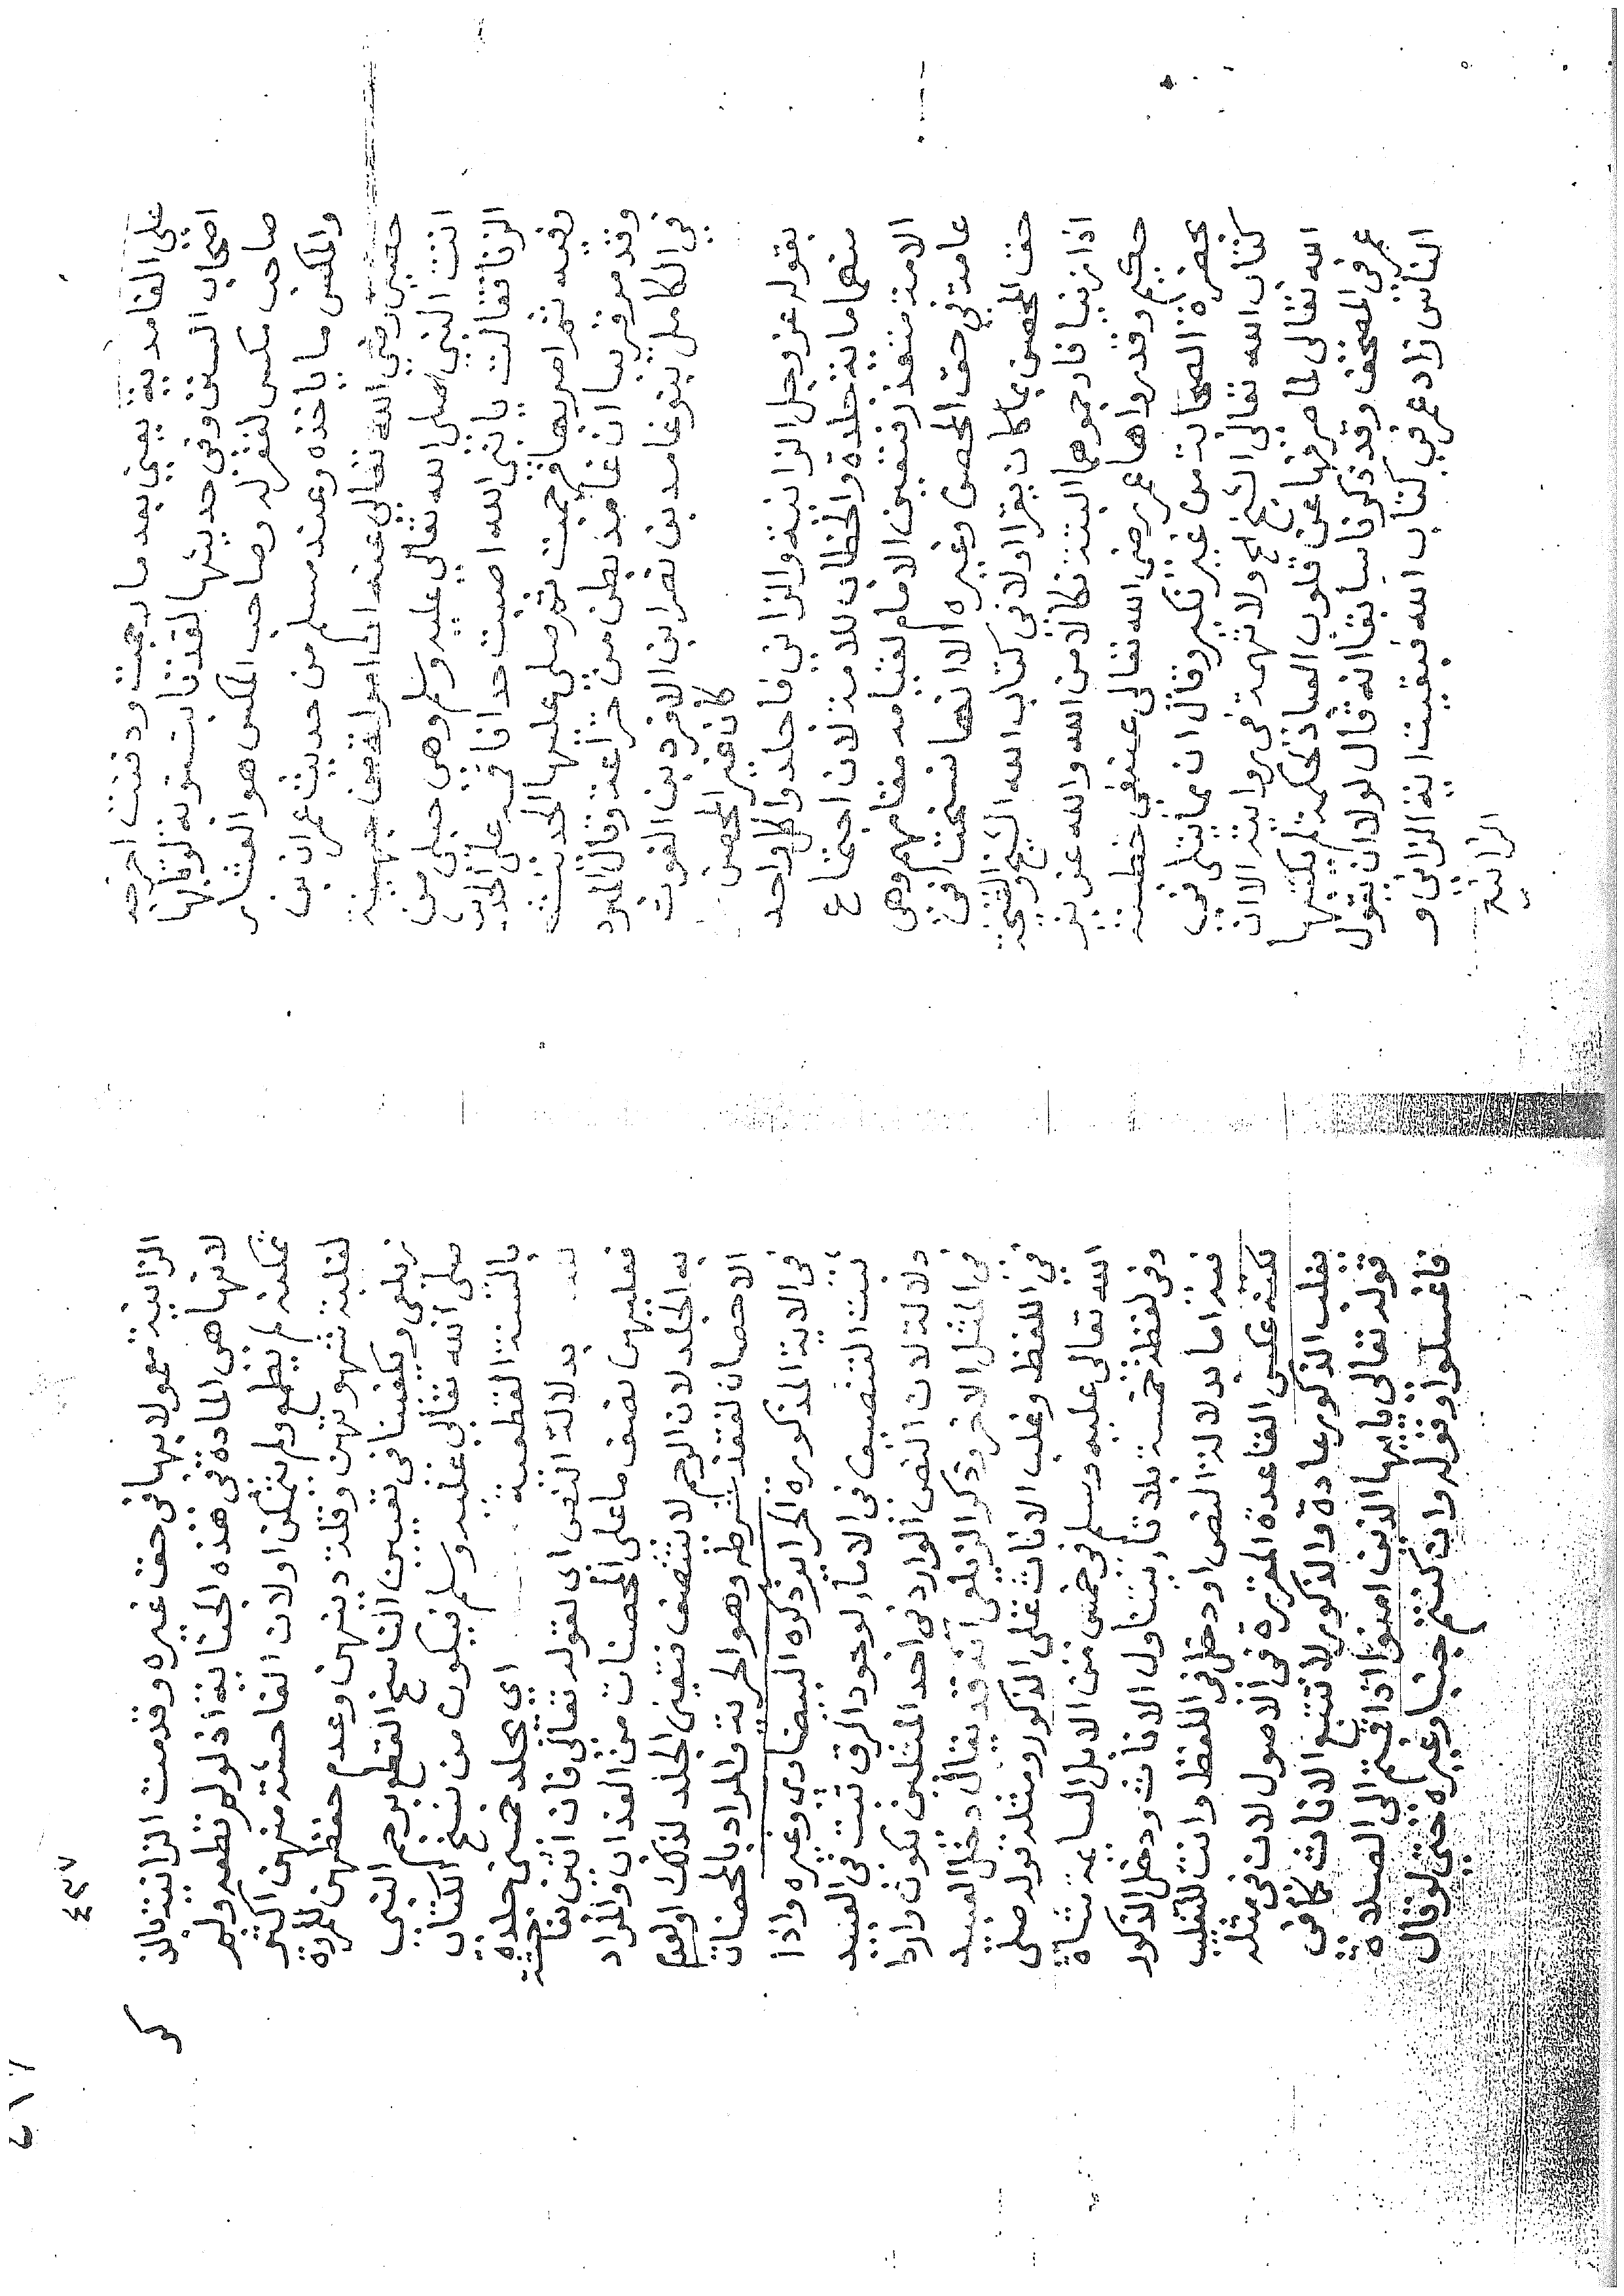 على الغامدية يعني بعد ما رجمت ودفنت اخرجه
اصحاب السنن وفي حديثها لقد تابت توبة لو تابها
صاحب مكس لغفر له وصاحب المكس هو العشار
والمكس ما ياخذه وعند مسلم من حديث عمران بن
حصين رضي الله تعالى عنه ان امراة من جهينة
اتت النبي صلى الله تعالى عليه وسلم وهي حبلى من
الزنا فقالت يا نبي الله اصبت حدا فاقمه علي الحديث
وفيه ثم امر بها فرجمت ثم صلى عليها الحديث
وقد مر قريبا ان غامد بطن من خزاعة وقال المبرد
في الكامل بنو غامد بن نصر ابن الازد بن الغوث
كان غير المحصن
بقوله عز وجل الزانية والزاني فاجلدوا كل واحد
منهما ماية جلدة والخطاب للامة لان اجتماع
الامة متعذر فتعين الامام لقيامه مقامهم وهي
عامة في حق المحصن وغيره الا انها نسخت في
حق المحصن بما كان يقرا اولا في كتاب الله الشيخ والشيخة
اذا زنيا فارجموهما البتة نكالا من الله والله عزيز
حكيم وقد رواها عمر رضي الله تعالى عنه في خطبته
بحضرة الصحابة من غير نكير وقال ان مما يتلى في
كتاب الله تعالى الشيخ الخ ولا تهمة في روايته الا ان
الله تعالى لما صرفها عن قلوب العباد لحكمة لم يكتبها
عمر في المصحف وقد ذكرنا سابقا انه قال لولا ان يقول
الناس زاد عمر في كتاب الله فبقيت اية الزاني و
الزانية
٤٢٧
الزانية معمولا بها في حق غيره وقدمت الزانية بالذ
لانها هي المادة في هذه الجناية اذ لو لم تطعه ولم
تمكنه لم يطمع ولم يتمكن اولان الفاحشة منهن اكثر
لغلبة شهوتهن وقلة دينهن وعدم حفظهن للمروة
زيلعي ويكفينا في تعيين الناسخ القطع برجم النبي
صلى الله تعالى عليه وسلم فيكون من نسخ الكتاب
بالسنة القطعية اي يجلد خمسين جلدة
بدلالة النص اي لقوله تعالى فان اتين بفاحشة
فعليهن نصف ما على المحصنات من العذاب والمراد
به الجلد لان الرجم لا يتنصف فتعين الجلد لذلك اولعدم
الاحصان لفقد شرطه وهو الحرية والمراد بالمحصنات
في الاية المذكورة الحراير ذكره البيضاوي وغيره واذا
ثبت التنصيف في الاماء لوجود الرق ثبت في العبيد
دلالة لان النص الوارد في احد المثلين يكون واردا
في المثل الاخر وذكر الزيلعي انه قد يقال دخل العبيد
في اللفظ وغلب الاناث على الذكور ومثله قوله صلى
الله تعالى عليه وسلم في خمس من الابل السايمة شاة
وفي لفظ خمسة بلا تاء يتناول الاناث ودخل الذكور
فيه اما بدلالة النص او دخل في اللفظ وانث للتغليب
لكنه عكس القاعدة المقررة في الاصول لان في مثله
يغلب الذكور عادة والذكور لا تتبع الاناث كما في
قوله تعالى يايها الذين امنوا اذا قمتم الى الصلاة
فاغسلوا وقوله وان كنتم جنبا وغيره حتى لو قال